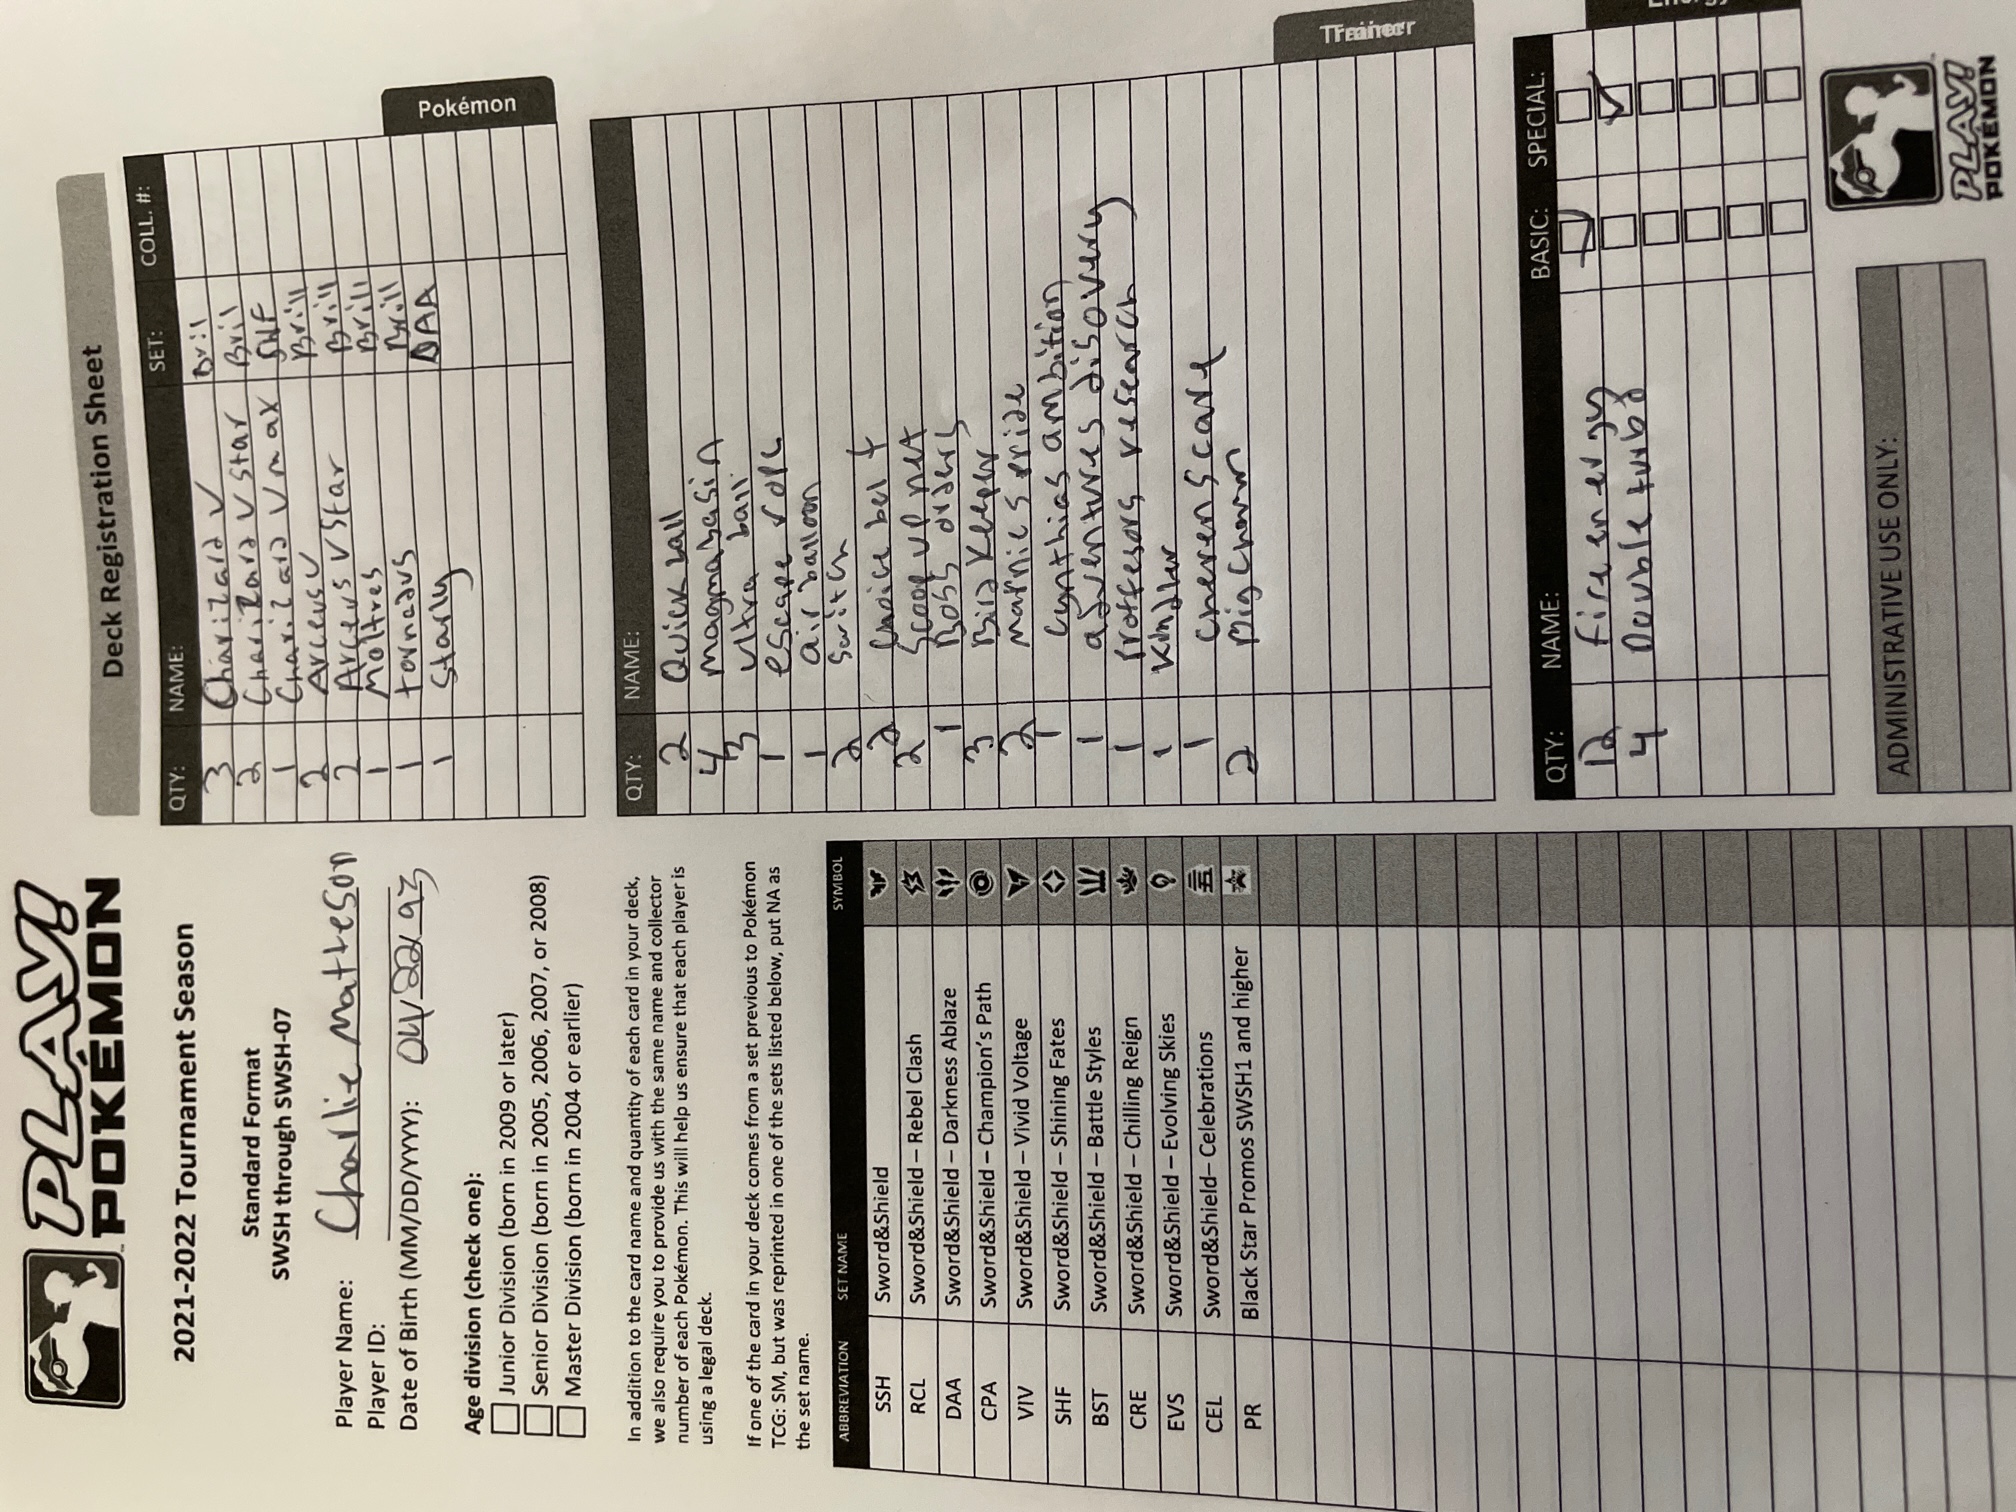 PLAY!
POKÉMON
2021-2022 Tournament Season
Standard Format
SWSH through SWSH-07
Player Name: Charlie Matteson
Player ID:
Date of Birth (MM/DD/YYYY): 04/22/93
Age division (check one):
Junior Division (born in 2009 or later)
Senior Division (born in 2005, 2006, 2007, or 2008)
Master Division (born in 2004 or earlier)
In addition to the card name and quantity of each card in your deck,
we also require you to provide us with the same name and collector
number of each Pokémon. This will help us ensure that each player is
using a legal deck.
If one of the card in your deck comes from a set previous to Pokémon
TCG: SM, but was reprinted in one of the sets listed below, put NA as
the set name.
ABBREVIATION SET NAME SYMBOL
SSH Sword&Shield
RCL Sword&Shield – Rebel Clash
DAA Sword&Shield – Darkness Ablaze
CPA Sword&Shield – Champion's Path
VIV Sword&Shield – Vivid Voltage
SHF Sword&Shield – Shining Fates
BST Sword&Shield – Battle Styles
CRE Sword&Shield – Chilling Reign
EVS Sword&Shield – Evolving Skies
CEL Sword&Shield– Celebrations
PR Black Star Promos SWSH1 and higher
Deck Registration Sheet
QTY: NAME: SET: COLL. #:
3 Charizard V Bril
2 Charizard V star Bril
1 Charizard Vmax SHF
2 Arceus V Brill
2 Arceus V Star Brill
1 Moltres Brill
1 tornadus Brill
1 Starly DAA
Pokémon
QTY: NAME:
2 Quick ball
4 magma basin
3 ultra ball
1 escape rope
1 air balloon
2 Switch
2 choice belt
2 Scoop up net
1 Boss orders
3 Bird Keeper
2 marnies pride
1 cynthias ambition
1 adventures disovery
1 Proffesors research
1 Kindler
1 cherens care
2 Big Charm
Trainer
QTY: NAME: BASIC: SPECIAL:
12 fire energy
4 Double turbo
ADMINISTRATIVE USE ONLY:
PLAY!
POKÉMON